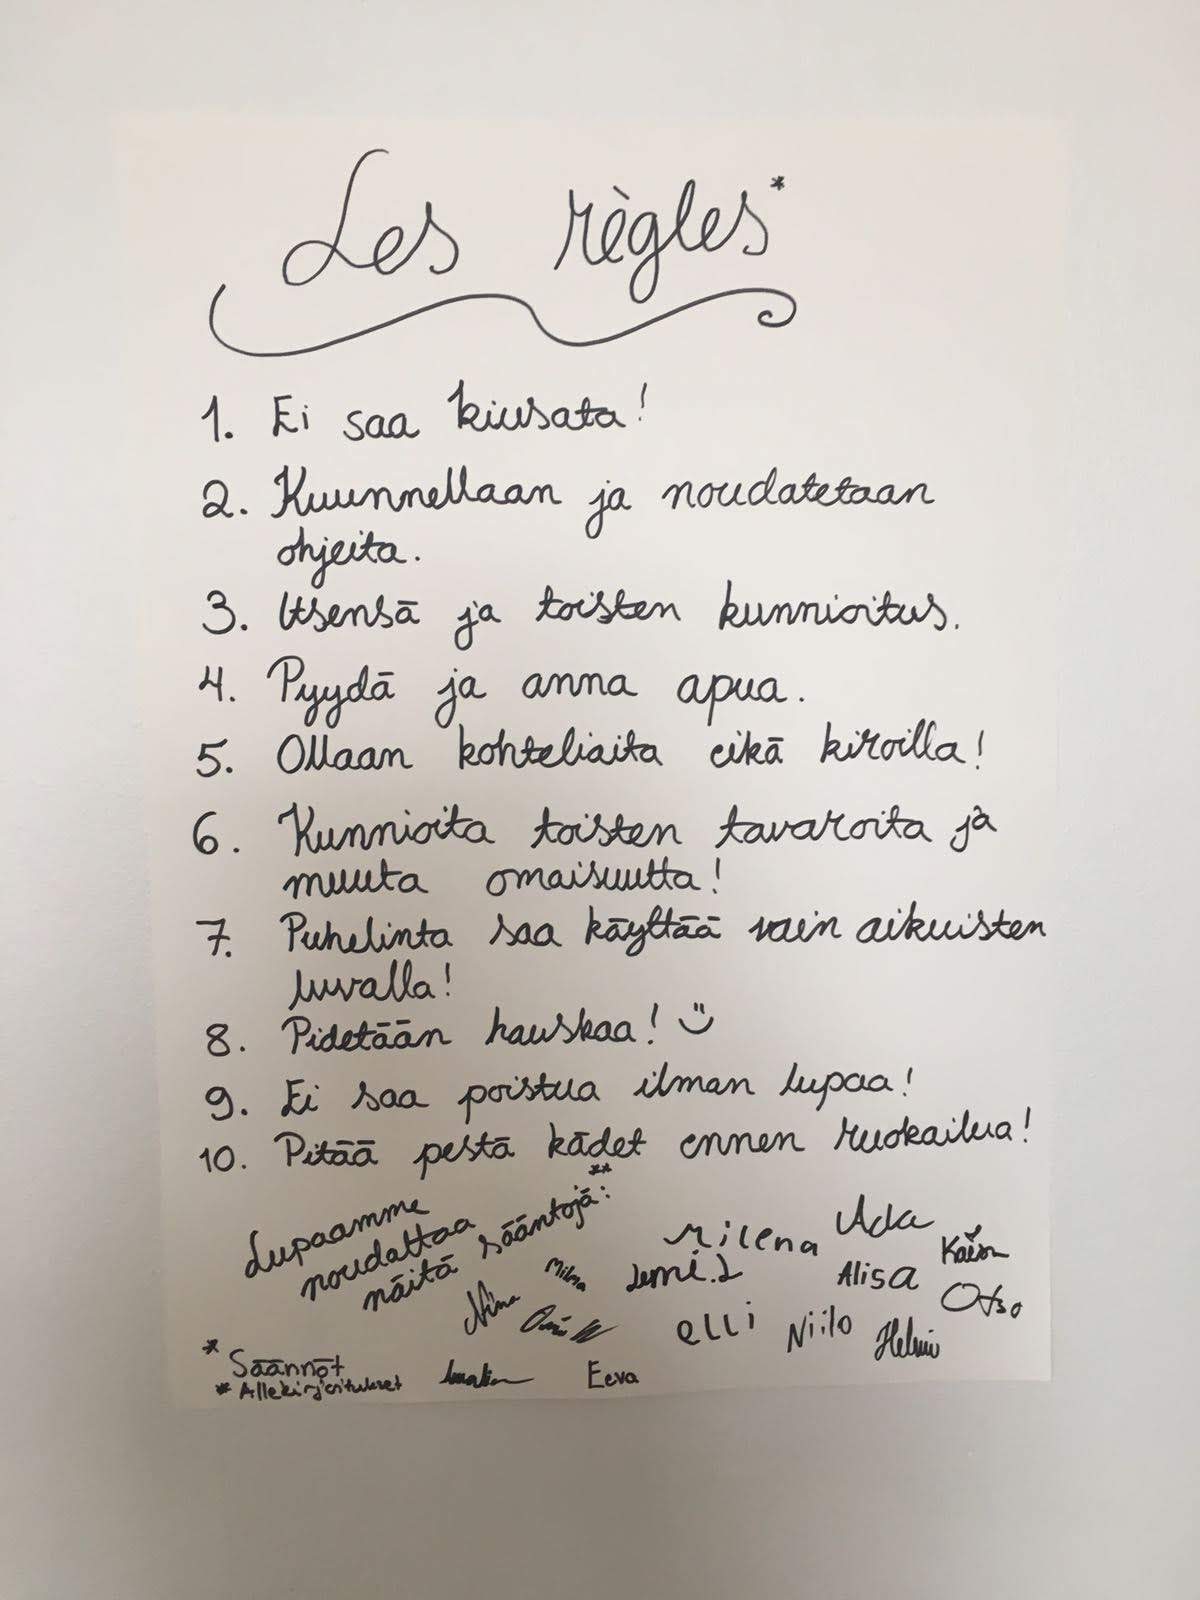 Les règles*
1. Ei saa kiusata!
2. Kuunnellaan ja noudatetaan
ohjeita.
3. Itsensä ja toisten kunnioitus.
4. Pyydä ja anna apua.
5. Ollaan kohteliaita eikä kiroilla!
6. Kunnioita toisten tavaroita ja
muuta omaisuutta!
7. Puhelinta saa käyttää vain aikuisten
luvalla!
8. Pidetään hauskaa!
9. Ei saa poistua ilman lupaa!
10. Pitää pestä kädet ennen ruokailua!
Lupaamme
noudattaa
näitä sääntöjä**:
Milena Ada
Milma Lemi.L Alisa
Niina elli Niilo Helmi Otso
Eeva
* Säännöt
* Allekirjoitukset